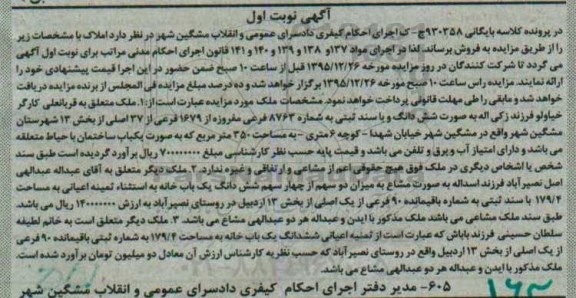 آگهی نوبت اول
در پرونده کلاسه بایگانی ۹۳۰۳۵۸ج-ک اجرای احکام کیفری دادسرای عمومی و انقلاب مشگین شهر در نظر دارد املاک با مشخصات زیر
را از طریق مزایده به فروش برساند. لذا در اجرای مواد ۱۳۷و ۱۳۸ و ۱۳۹ و ۱۴۰ و ۱۴۱ قانون اجرای احکام مدنی مراتب برای نوبت اول آگهی
می گردد تا شرکت کنندگان در روز مزایده مورخه ۱۳۹۵/۱۲/۲۶ قبل از ساعت ۱۰ صبح ضمن حضور در این اجرا قیمت پیشنهادی خود را
ارائه نمایند. مزایده راس ساعت ۱۰ صبح مورخه ۱۳۹۵/۱۲/۲۶ برگزار خواهد شد و ده درصد مبلغ مزایده فی المجلس از برنده مزایده دریافت
خواهد شد و مابقی را طی مهلت قانونی پرداخت خواهد نمود. مشخصات ملک مورد مزایده عبارت است از: ۱. ملک متعلق به قربانعلی کارگر
خیاولو فرزند زکی اله به صورت شش دانگ و با سند ثبتی به شماره ۸۷۶۳ فرعی مفروزه از ۱۶۷۹ فرعی از ۳۷ اصلی از بخش ۱۳ شهرستان
مشگین شهر واقع در مشگین شهر خیابان شهدا - کوچه ۶متری - به مساحت ۳۵۰ متر مربع که به صورت یکباب ساختمان با حیاط متعلقه
می باشد و دارای امتیاز آب و برق و تلفن می باشد و قیمت پایه حسب نظر کارشناسی مبلغ ۷۰۰۰۰۰۰۰۰ ریال بر آورد گردیده است طبق سند
شخص یا اشخاص دیگری در ملک فوق هیچ حقوقی اعم از مشاعی یا ارتفاقی و غیره ندارد. ۲. ملک دیگر متعلق به آقای عبداله عبدالهی
اصل نصیر آباد فرزند اسداله به صورت مشاع به میزان دو سهم از چهار سهم شش دانگ یک باب خانه به استثناء ثمینه اعیانی به مساحت
۱۷۹/۴ با سند ثبتی به شماره باقیمانده ۹۰ فرعی از یک اصلی از بخش ۱۳ اردبیل در روستای نصیر آباد به ارزش ۱۴۰۰۰۰۰۰۰ ریال می باشد.
طبق سند ملک مشاعی می باشد ملک مذکور با ایدن و عبداله هر دو عبدالهی مشاع می باشد. ۳. ملک دیگر متعلق است به خانم لطیفه
سلطان حسینی فرزند باباش که عبارت است از ثمنیه اعیانی ششدانگ یک باب خانه به مساحت ۱۷۹/۴ به شماره ثبتی باقیمانده ۹۰ فرعی
از یک اصلی از بخش ۱۳ اردبیل واقع در روستای نصیر آباد که حسب نظریه کارشناس ارزش آن معادل دو میلیون تومان برآورد شده است.
ملک مذکور با ایدن و عبداله هر دو عبدالهی مشاع می باشد.
۶۰۵- مدیر دفتر اجرای احکام کیفری دادسرای عمومی و انقلاب مشگین شهر